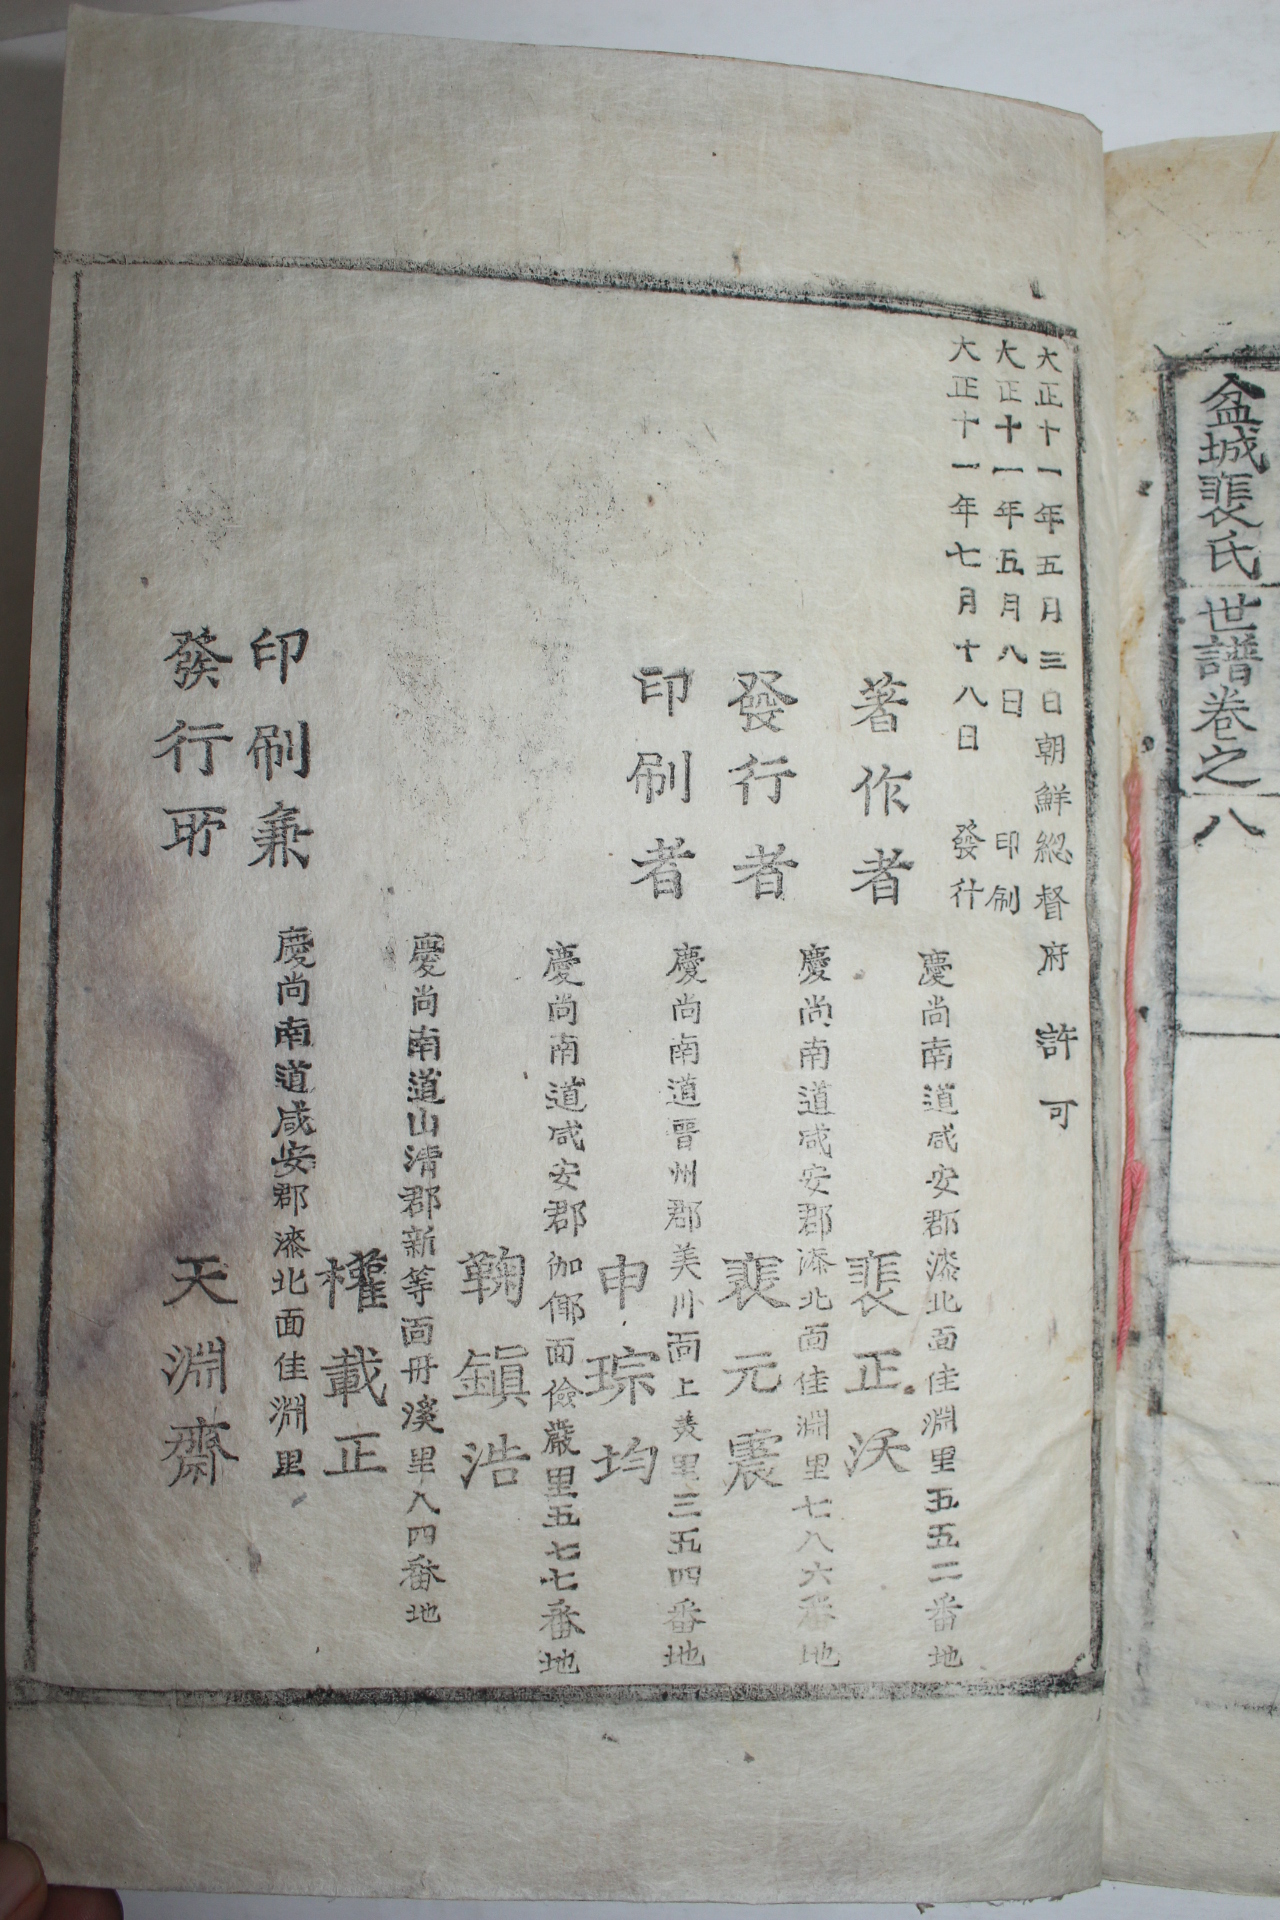 盆城裴氏世譜卷之八
大正十一年五月三日朝鮮總督府許可
大正十一年五月八日印刷
大正十一年七月十八日發行
慶尚南道咸安郡漆北面佳淵里五五二番地
著作者裴正沃
慶尚南道咸安郡漆北面佳淵里七八六番地
發行者裴元震
慶尚南道晋州郡美川面上美里三五四番地
印刷者申琮均
慶尚南道咸安郡伽倻面儉巖里五七七番地
鞠鎭浩
慶尚南道山淸郡新等面丹溪里八四番地
權載正
慶尚南道咸安郡漆北面佳淵里
印刷兼
發行所天淵齋